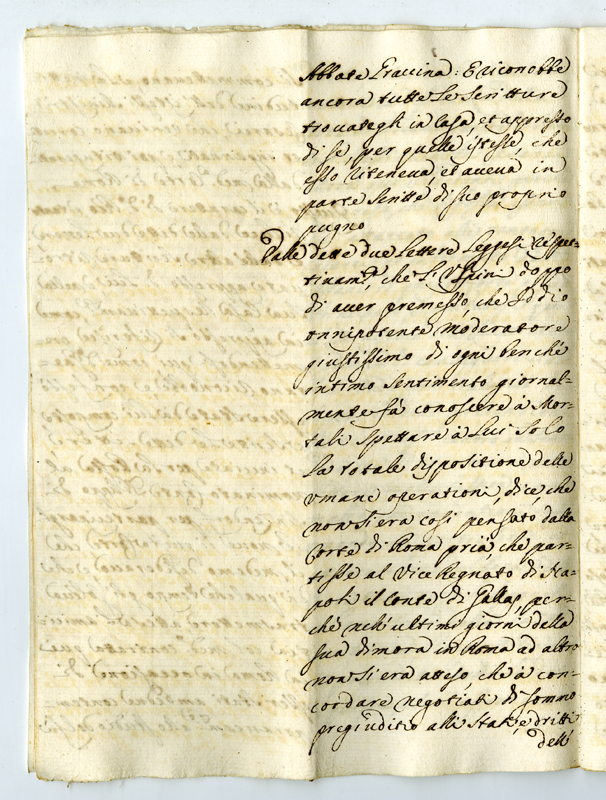 Abbate Graccina: E riconobbe
ancora tutte le scritture
trovategli in Casa, et appresso
di se, per quelle istesse, che
esso riteneva, et aveva in
parte scritte di suo proprio
pugno
Dalle dette due Lettere leggesi
che li doppo
di aver premesso, che Iddio
onnipotente moderatore
giustissimo di ogni benché
intimo sentimento giornal=
mente fà conoscere à Mor=
tali spettare à Lui solo
la totale dispositione delle
umane operationi, dice, che
non si era così pensato dalla
Corte di Roma prià che par=
tisse al Vice Regnato di Na=
poli il Conte di Gallas, per=
ché nell'ultimi giorni della
sua dimora in Roma ad altro
non si era atteso, che à con=
cordare negotiati di sommo
pregiuditio alli Stati, e dritti
dell'